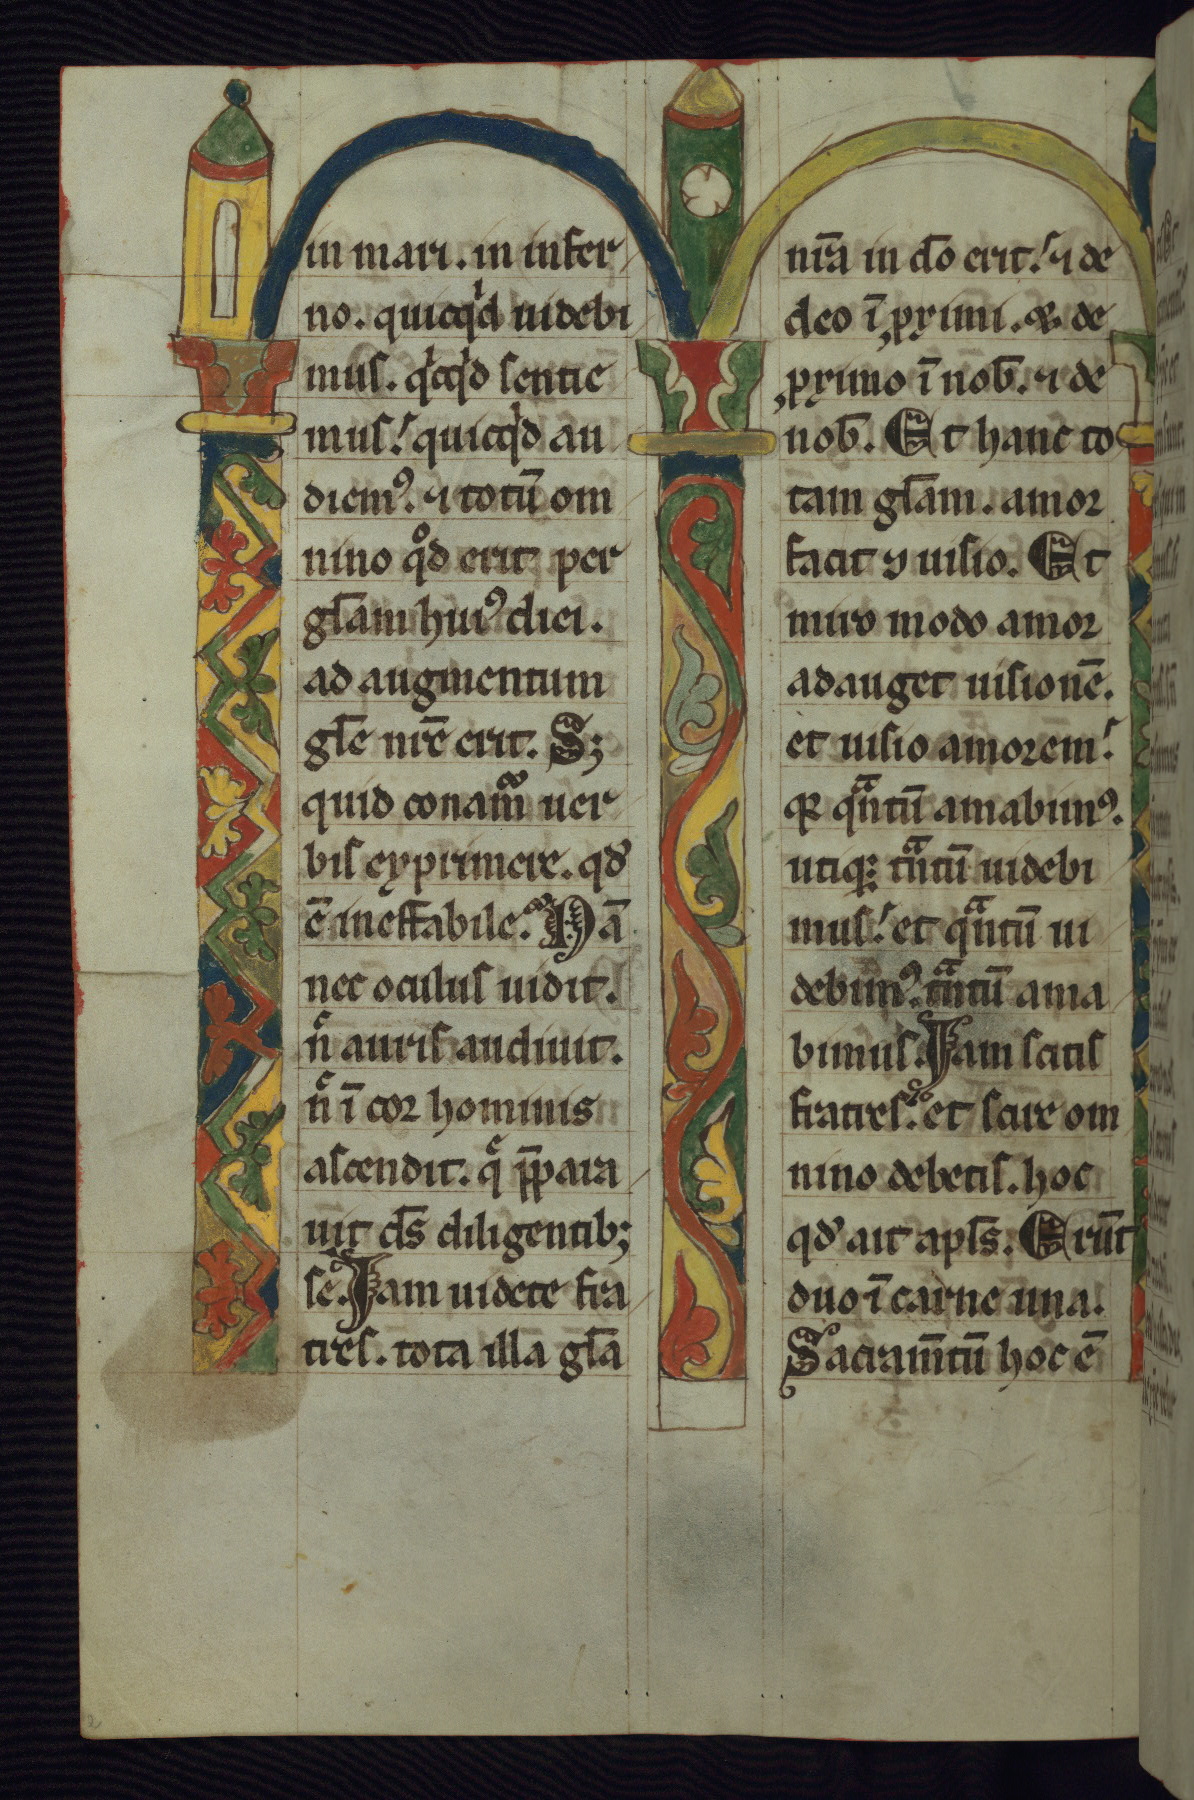 in mari. in infer
no. quicqͥd uidebi
mus. qͥcqͥd sentie
mus. quicqͥd au
diemꝰ. ⁊ totū om
nino qͦd erit per
gl̄am huiꝰ diei.
ad augmentum
gl̄e nr̄e erit. S;
quid conam̄ uer
bis exprimere. qd̓
ē ineffabile. Nā
nec oculus uidit.
n̄ͨ auris audiuit.
n̄ͨ ī cor hominis
ascendit. q̄ p̄para
uit ds̄ diligentib;
se. Iam uidete fra
tres. tota illa gl̄a
nr̄a in do erit. ⁊ de
deo ī ꝓximi. & de
ꝓximo ī nob̄. ⁊ de
nob̄. Et hanc to
tam gl̄am. amor
facit ꝯ uisio. Et
miro modo amor
adauget uisionē.
et uisio amorem.
qꝛ qͣntū amabimꝰ.
utiqꝫ tͣntū uidebi
mus. et qͣntū ui
debimꝰ. tͣntū ama
bimus. Iam scitis
fratres. et scire om
nino debetis. hoc
qd̓ ait apl̄s. Erūt
duo ī carne una.
Sacram̄tū hoc ē